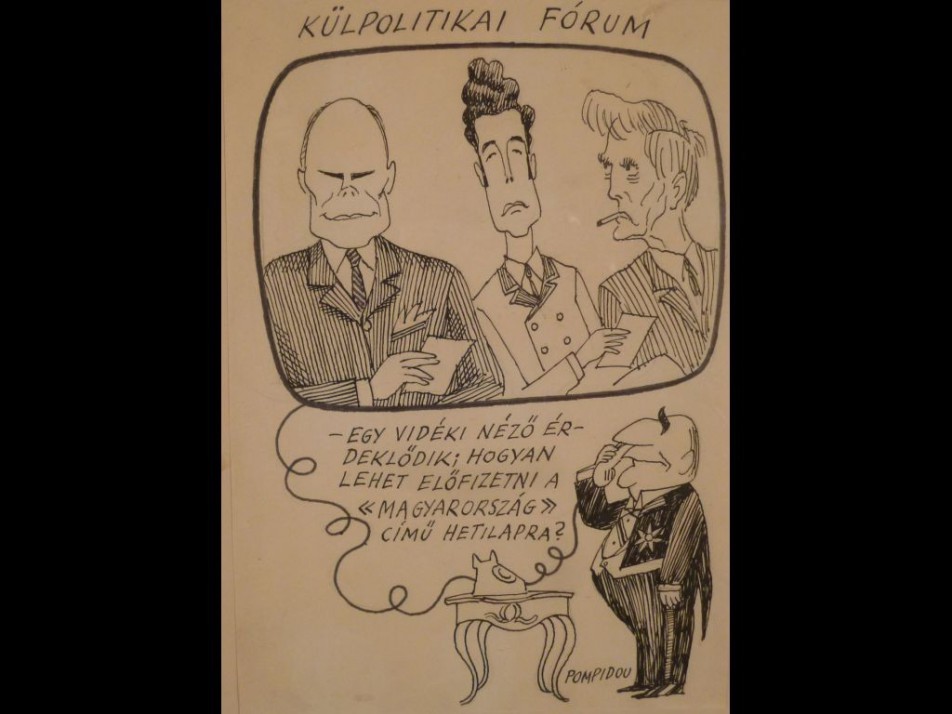 KÜLPOLITIKAI FÓRUM
- EGY VIDÉKI NÉZŐ ÉR-
DEKLŐDIK; HOGYAN
LEHET ELŐFIZETNI A
«MAGYARORSZÁG»
CÍMŰ HETILAPRA?
POMPIDOU